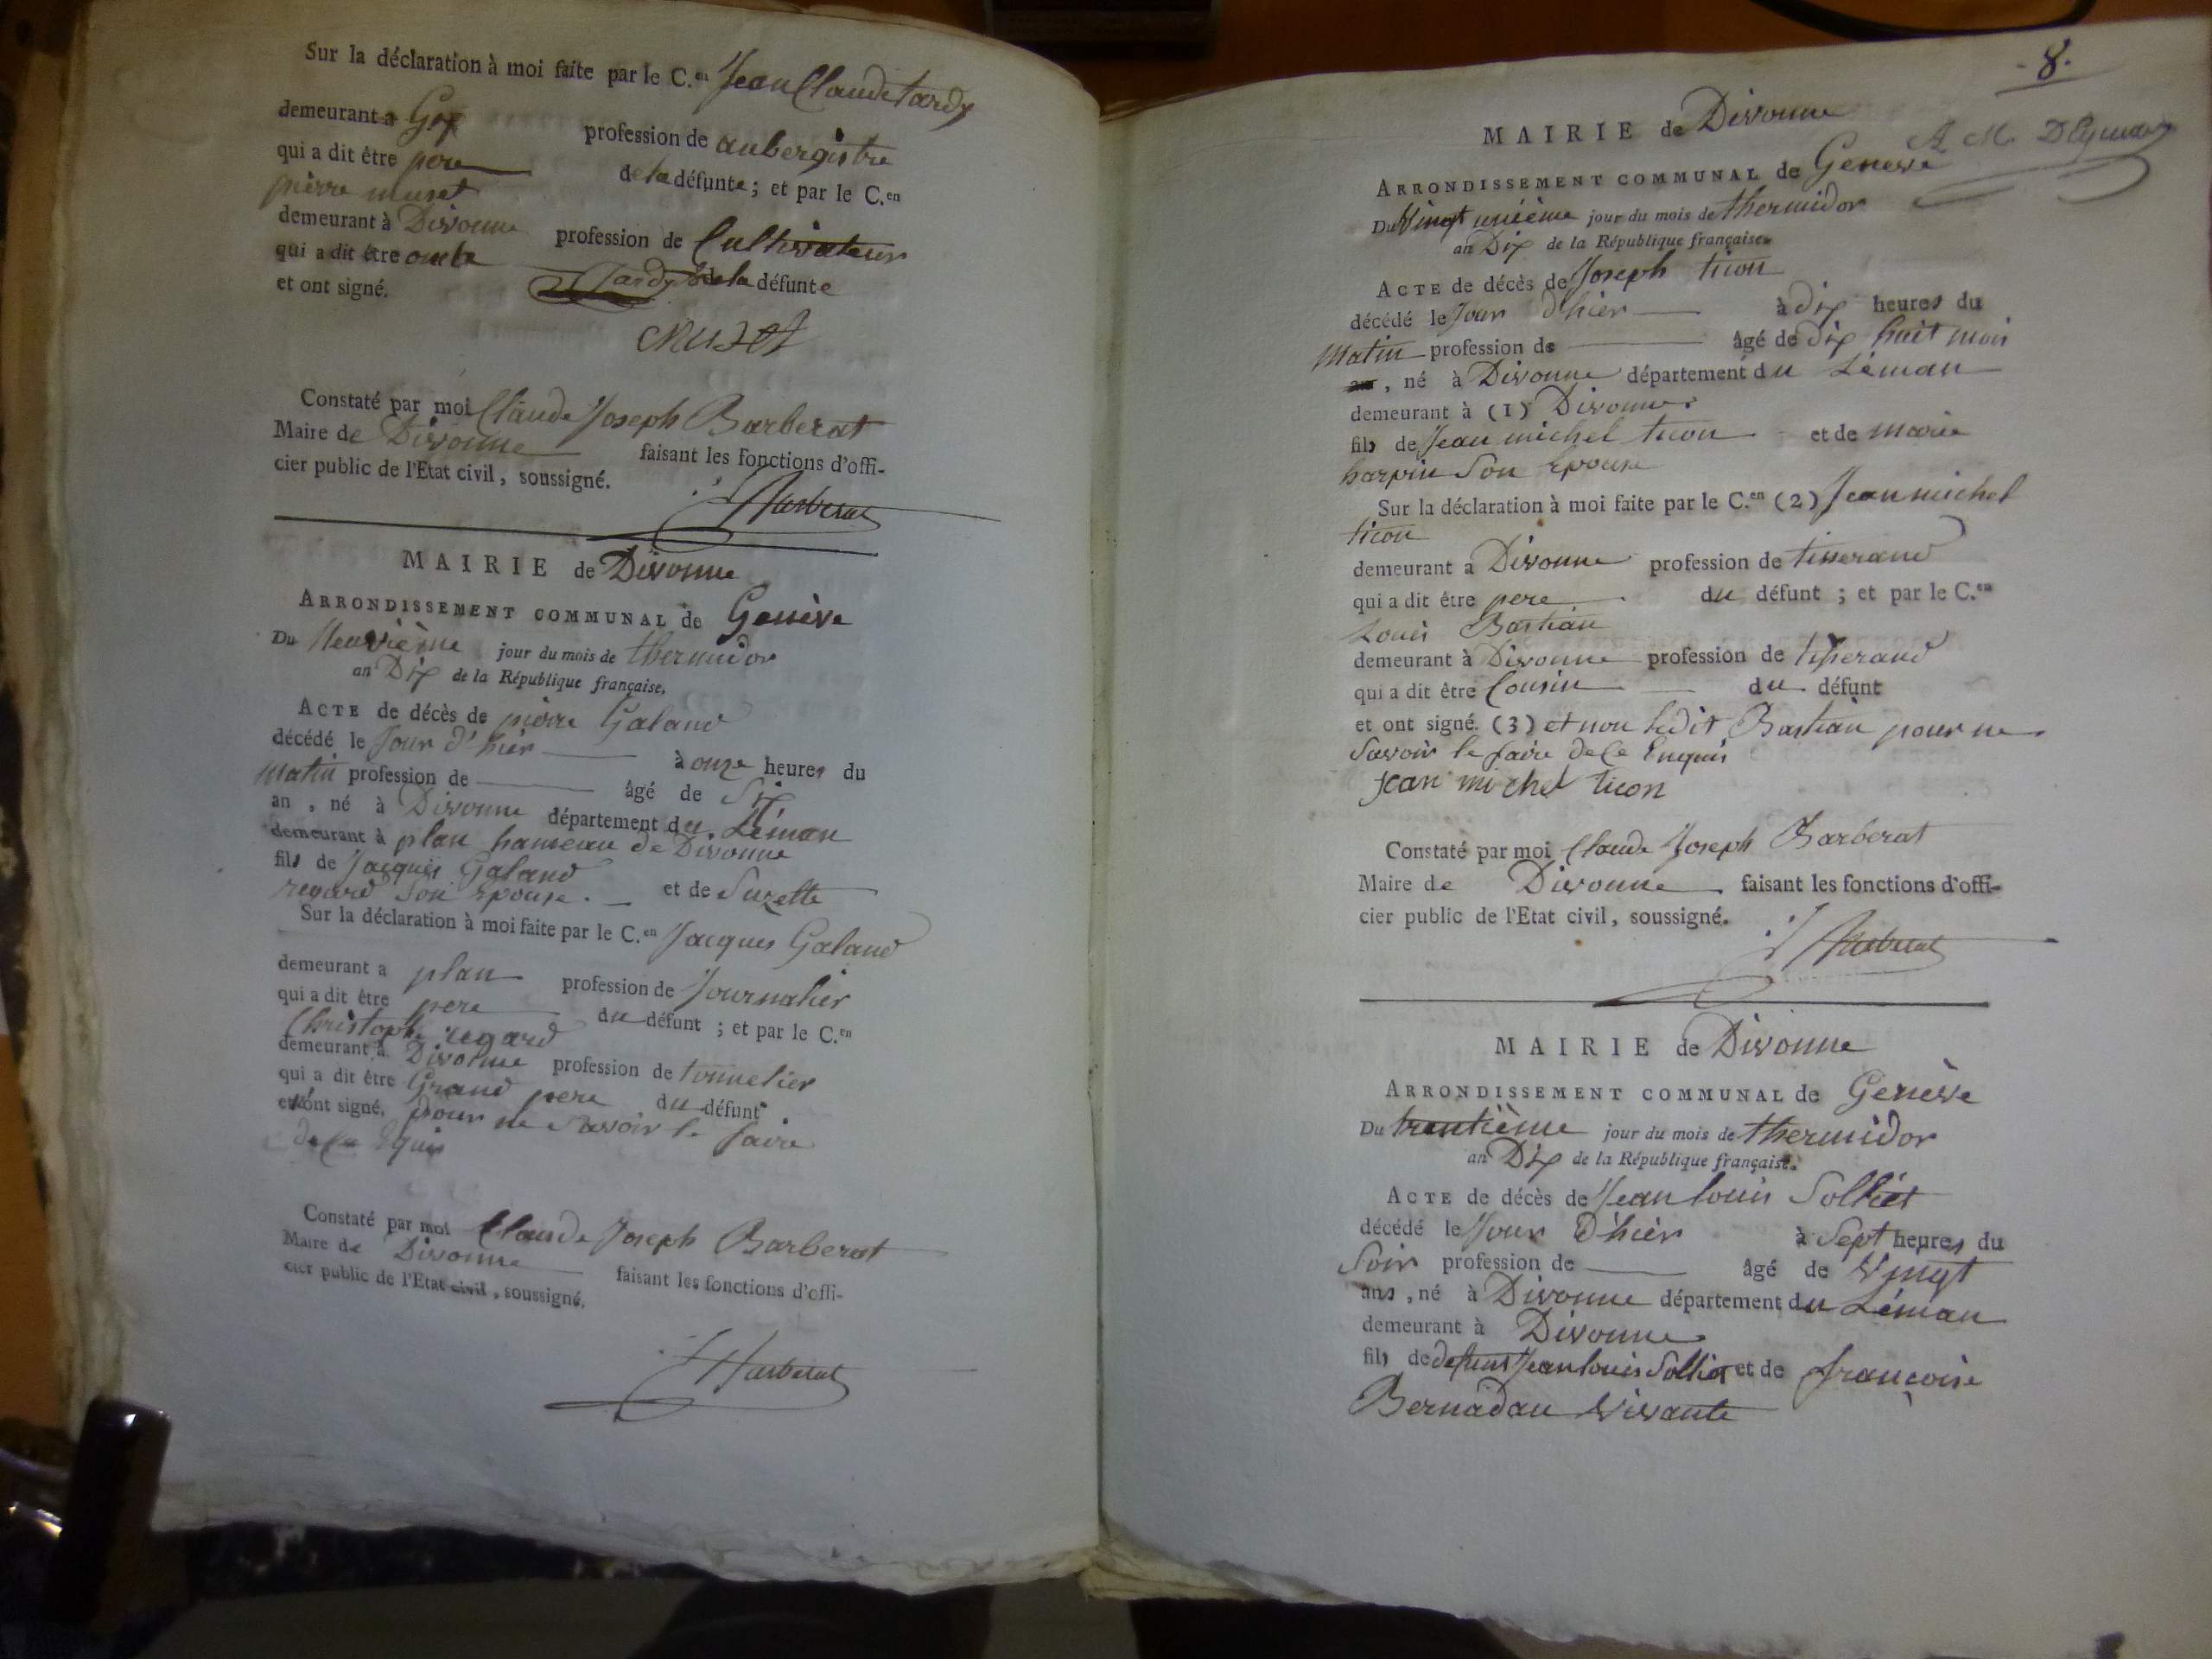 Sur la déclaration à moi faite par le C.en Jean Claude tardy
demeurant a Gex profession de aubergiste
qui a dit être pere de la défunte ; et par le C.en
pierre muset
demeurant à Divonne profession de Cultivateur
qui a dit être oncle de la défunte
et ont signé. Tardy
Muset
Constaté par moi Claude Joseph Barberat
Maire de Divonne faisant les fonctions d'offi-
cier public de l'Etat civil, soussigné.
Barberat
MAIRIE de Divonne
ARRONDISSEMENT COMMUNAL de Genève
Du Neuvième jour du mois de thermidor
an Dix de la République française.
ACTE de décès de pierre Galand
décédé le Jour d'hier à onze heures du
matin profession de âgé de Six
an, né à Divonne département du Léman
demeurant à plan hameau de Divonne
fils de Jacques Galand et de Suzette
regard Son Epouse.
Sur la déclaration à moi faite par le C.en Jacques Galand
demeurant a plan profession de Journalier
qui a dit être pere du défunt ; et par le C.en
Christophe regard
demeurant à Divonne profession de tonnelier
qui a dit être Grand pere du défunt
et n'ont signé. pour ne Savoir le faire
de ce Equis
Constaté par moi Claude Joseph Barberat
Maire de Divonne faisant les fonctions d'offi-
cier public de l'Etat civil, soussigné.
Barberat
- 8.
MAIRIE de Divonne
A. M.
ARRONDISSEMENT COMMUNAL de Geneve
Du Vingt unième jour du mois de thermidor
an Dix de la République française.
ACTE de décès de Joseph ticon
décédé le Jour d'hier à dix heures du
matin profession de âgé de dix huit mois
an, né à Divonne département du Léman
demeurant à (1) Divonne.
fils de Jean michel ticon et de marie
harpin Son Epouse
Sur la déclaration à moi faite par le C.en (2) Jean michel
ticon
demeurant a Divonne profession de tisserand
qui a dit être pere du défunt ; et par le C.en
Louis Bastian
demeurant à Divonne profession de tisserand
qui a dit être Cousin du défunt
et ont signé. (3) et non ledit Bastian pour ne
Savoir le faire de ce Enquis
Jean michel ticon
Constaté par moi Claude Joseph Barberat
Maire de Divonne faisant les fonctions d'offi-
cier public de l'Etat civil, soussigné.
Barberat
MAIRIE de Divonne
ARRONDISSEMENT COMMUNAL de Genève
Du trentième jour du mois de thermidor
an Dix de la République française.
ACTE de décès de Jean louis Solliet
décédé le Jour D'hier à Sept heures du
Soir profession de âgé de Vingt
ans, né à Divonne département du Léman
demeurant à Divonne
fils de defunt Jean louis Solliet et de françoise
Bernadau Vivante